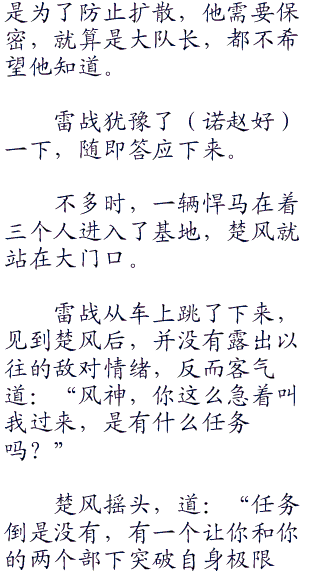 是为了防止扩散，他需要保
密，就算是大队长，都不希
望他知道。
雷战犹豫了（诺赵好）
一下，随即答应下来。
不多时，一辆悍马在着
三个人进入了基地，楚风就
站在大门口。
雷战从车上跳了下来，
见到楚风后，并没有露出以
往的敌对情绪，反而客气
道：“风神，你这么急着叫
我过来，是有什么任务
吗？”
楚风摇头，道：“任务
倒是没有，有一个让你和你
的两个部下突破自身极限